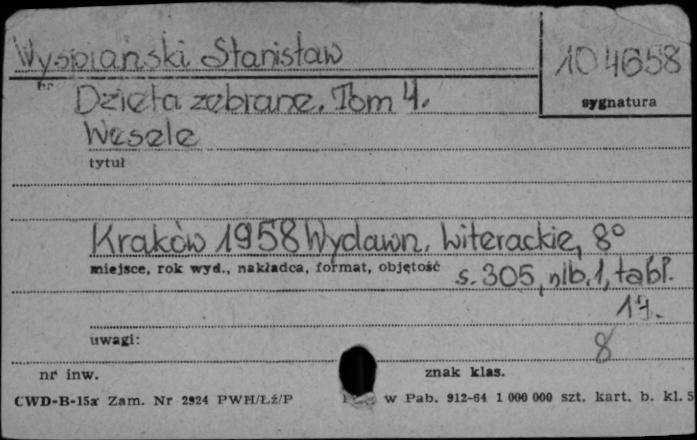 Wyspiański Stanisław
104658
sygnatura
Dzieła zebrane. Tom 4.
Wesele
tytuł
Kraków 1958 Wydawn. Literackie, 8°
miejsce, rok wyd., nakładca, format, objętość
s. 305, nlb. 1, tabl.
17.
uwagi:
8
nr inw.
znak klas.
CWD-B-15a Zam. Nr 2924 PWH/Łź/P
w Pab. 912-64 1 000 000 szt. kart. b. kl. 5